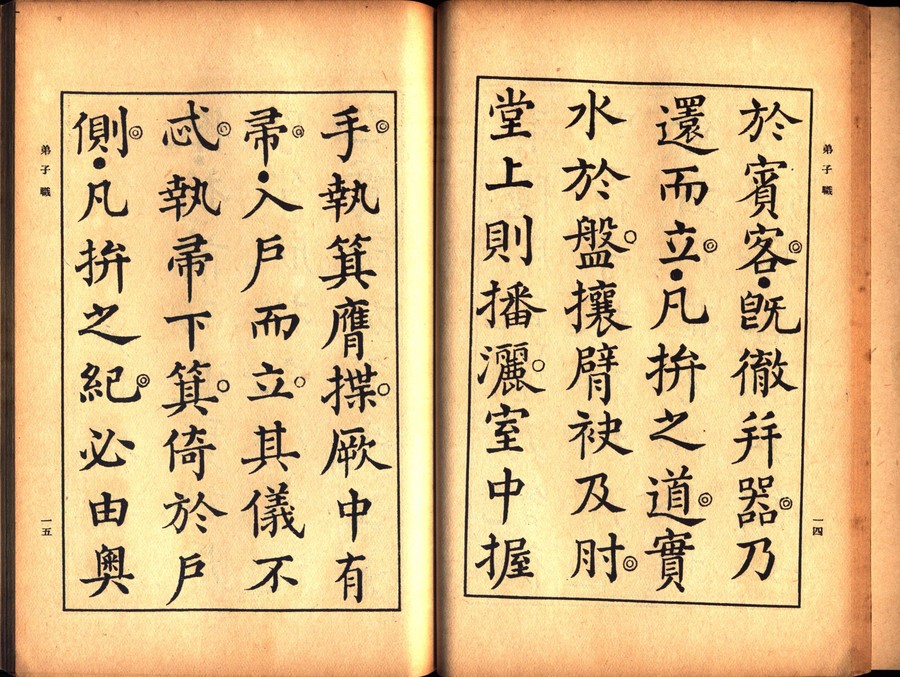 弟子職
於賓客◎●旣徹幷器◎乃
還而立◎●凡拚之道◎實
水於盤○攘臂袂及肘◎
堂上則播灑○室中握
一四
弟子職
手◎執箕膺揲○厥中有
帚◎●入戶而立○其儀不
忒◎執帚下箕○倚於戶
側◎●凡拚之紀◎必由奧
一五